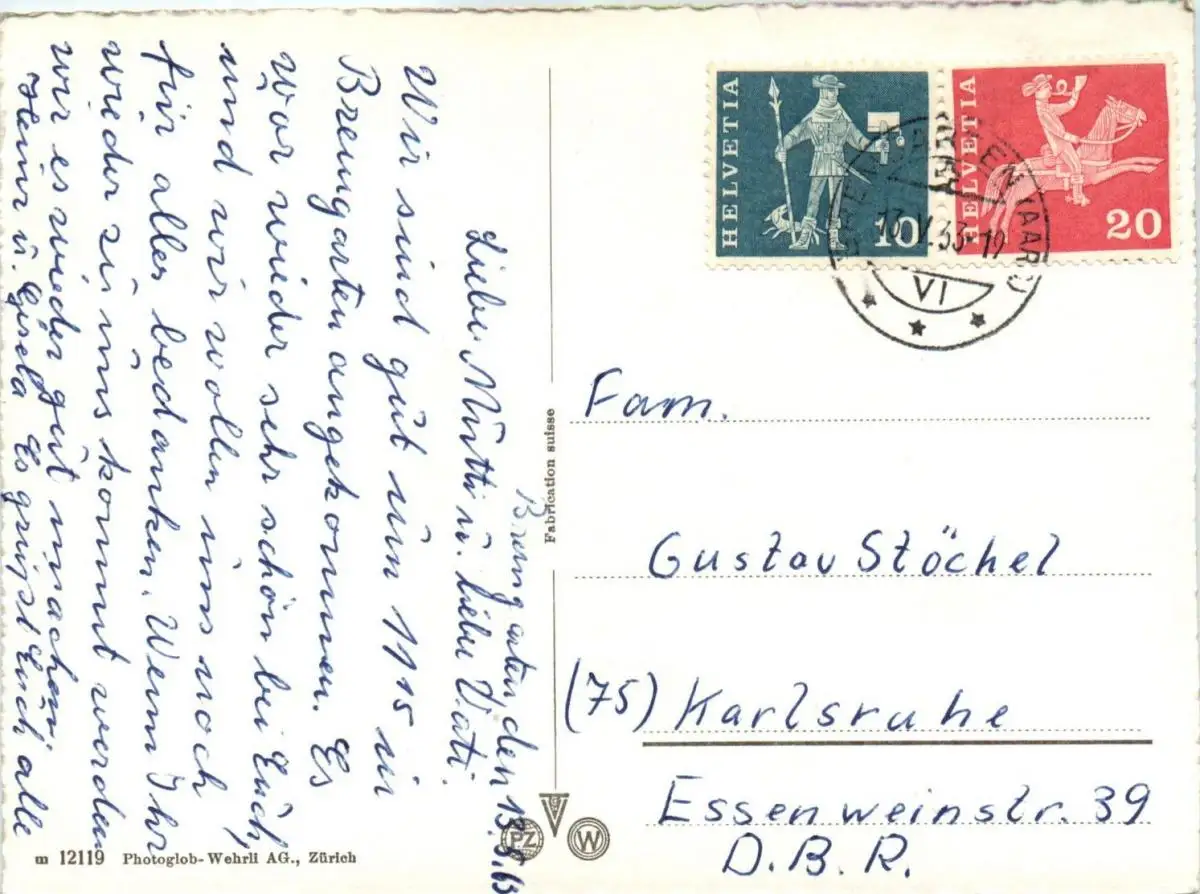 Bremgarten, den 13.5.63
Liebe Mutti u. lieber Vati.
Wir sind gut um 11 15 in
Bremgarten angekommen. Es
war wieder sehr schön bei Euch,
und wir wollen uns noch
für alles bedanken. Wenn Ihr
wieder zu uns kommt werden
wir es wieder gut machen.
Es grüsst Euch alle
Heinz u. Gisela
HELVETIA
10
HELVETIA
20
BREMGARTEN (AARG)
13.V.63-19
VI
Fabrication suisse
Fam.
Gustav Stöchel
(75) Karlsruhe
Essenweinstr. 39
D.B.R.
PZ
W
m 12119 Photoglob-Wehrli AG., Zürich